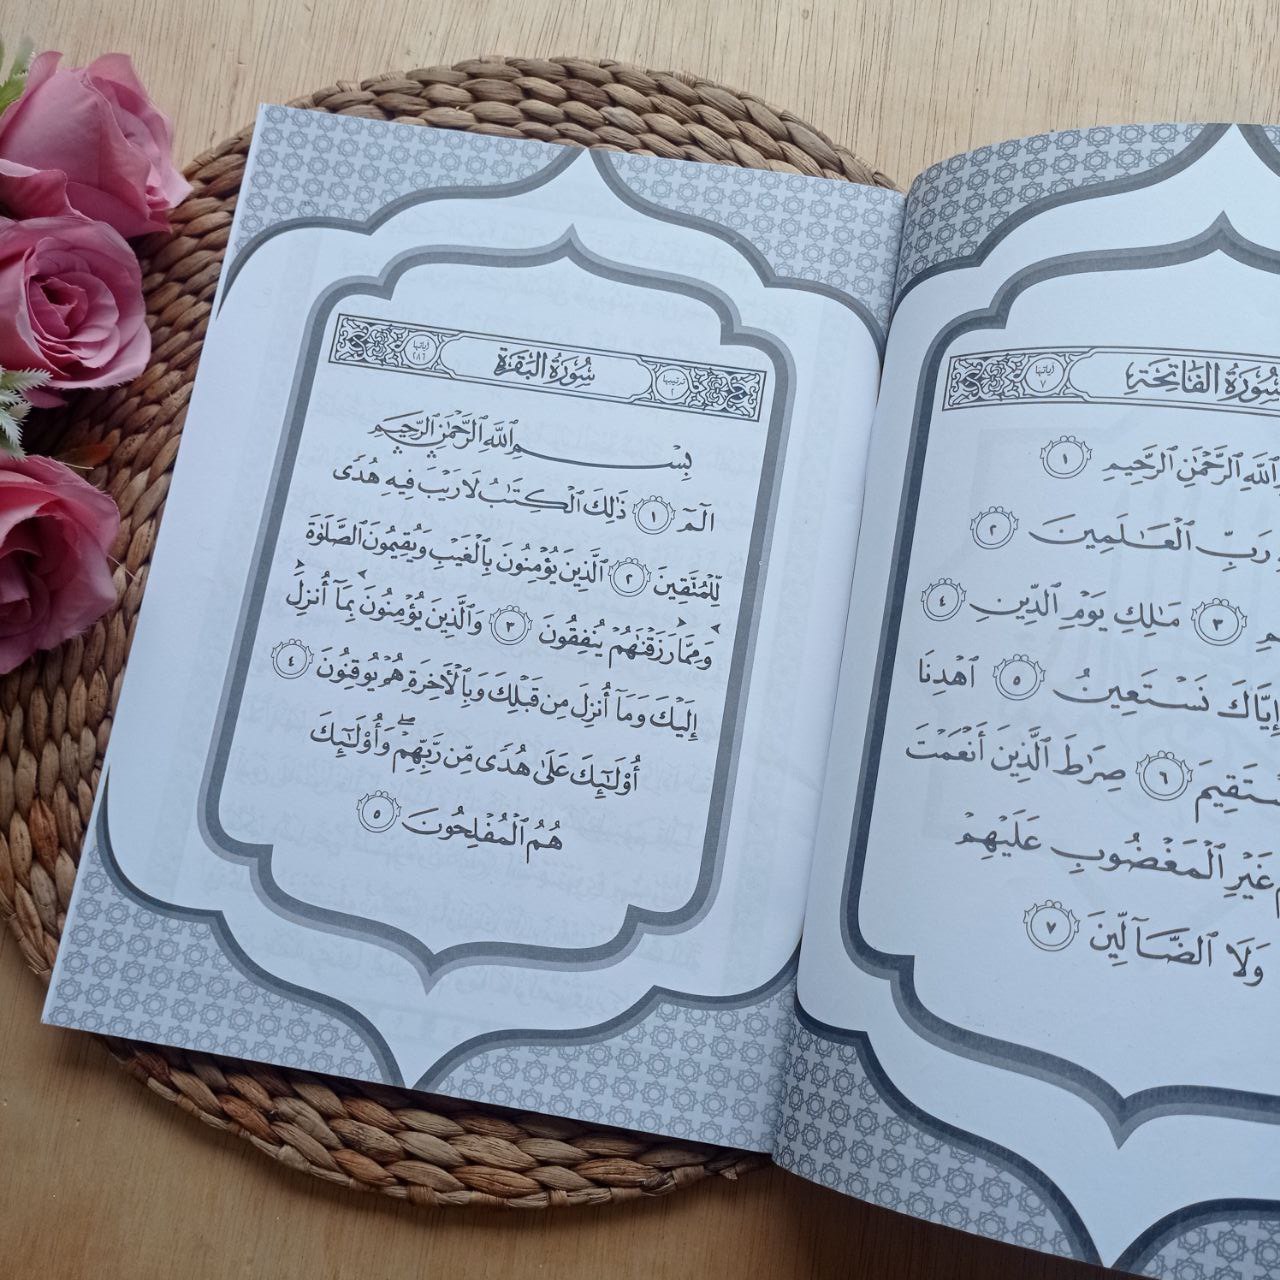 سُورَةُ الفَاتِحَةِ
آياتها ٧
ٱللَّهِ ٱلرَّحْمَٰنِ ٱلرَّحِيمِ ١
رَبِّ ٱلْعَٰلَمِينَ ٢
٣ مَٰلِكِ يَوْمِ ٱلدِّينِ ٤
إِيَّاكَ نَسْتَعِينُ ٥ ٱهْدِنَا
٦ صِرَٰطَ ٱلَّذِينَ أَنْعَمْتَ
غَيْرِ ٱلْمَغْضُوبِ عَلَيْهِمْ
وَلَا ٱلضَّآلِّينَ ٧
ترتيبها ٢
سُورَةُ البَقَرَةِ
آياتها ٢٨٦
بِسْمِ ٱللَّهِ ٱلرَّحْمَٰنِ ٱلرَّحِيمِ
الٓمٓ ١ ذَٰلِكَ ٱلْكِتَٰبُ لَا رَيْبَ فِيهِ هُدًى
لِّلْمُتَّقِينَ ٢ ٱلَّذِينَ يُؤْمِنُونَ بِٱلْغَيْبِ وَيُقِيمُونَ ٱلصَّلَوٰةَ
وَمِمَّا رَزَقْنَٰهُمْ يُنفِقُونَ ٣ وَٱلَّذِينَ يُؤْمِنُونَ بِمَآ أُنزِلَ
إِلَيْكَ وَمَآ أُنزِلَ مِن قَبْلِكَ وَبِٱلْأٓخِرَةِ هُمْ يُوقِنُونَ ٤
أُو۟لَٰٓئِكَ عَلَىٰ هُدًى مِّن رَّبِّهِمْ ۖ وَأُو۟لَٰٓئِكَ
هُمُ ٱلْمُفْلِحُونَ ٥